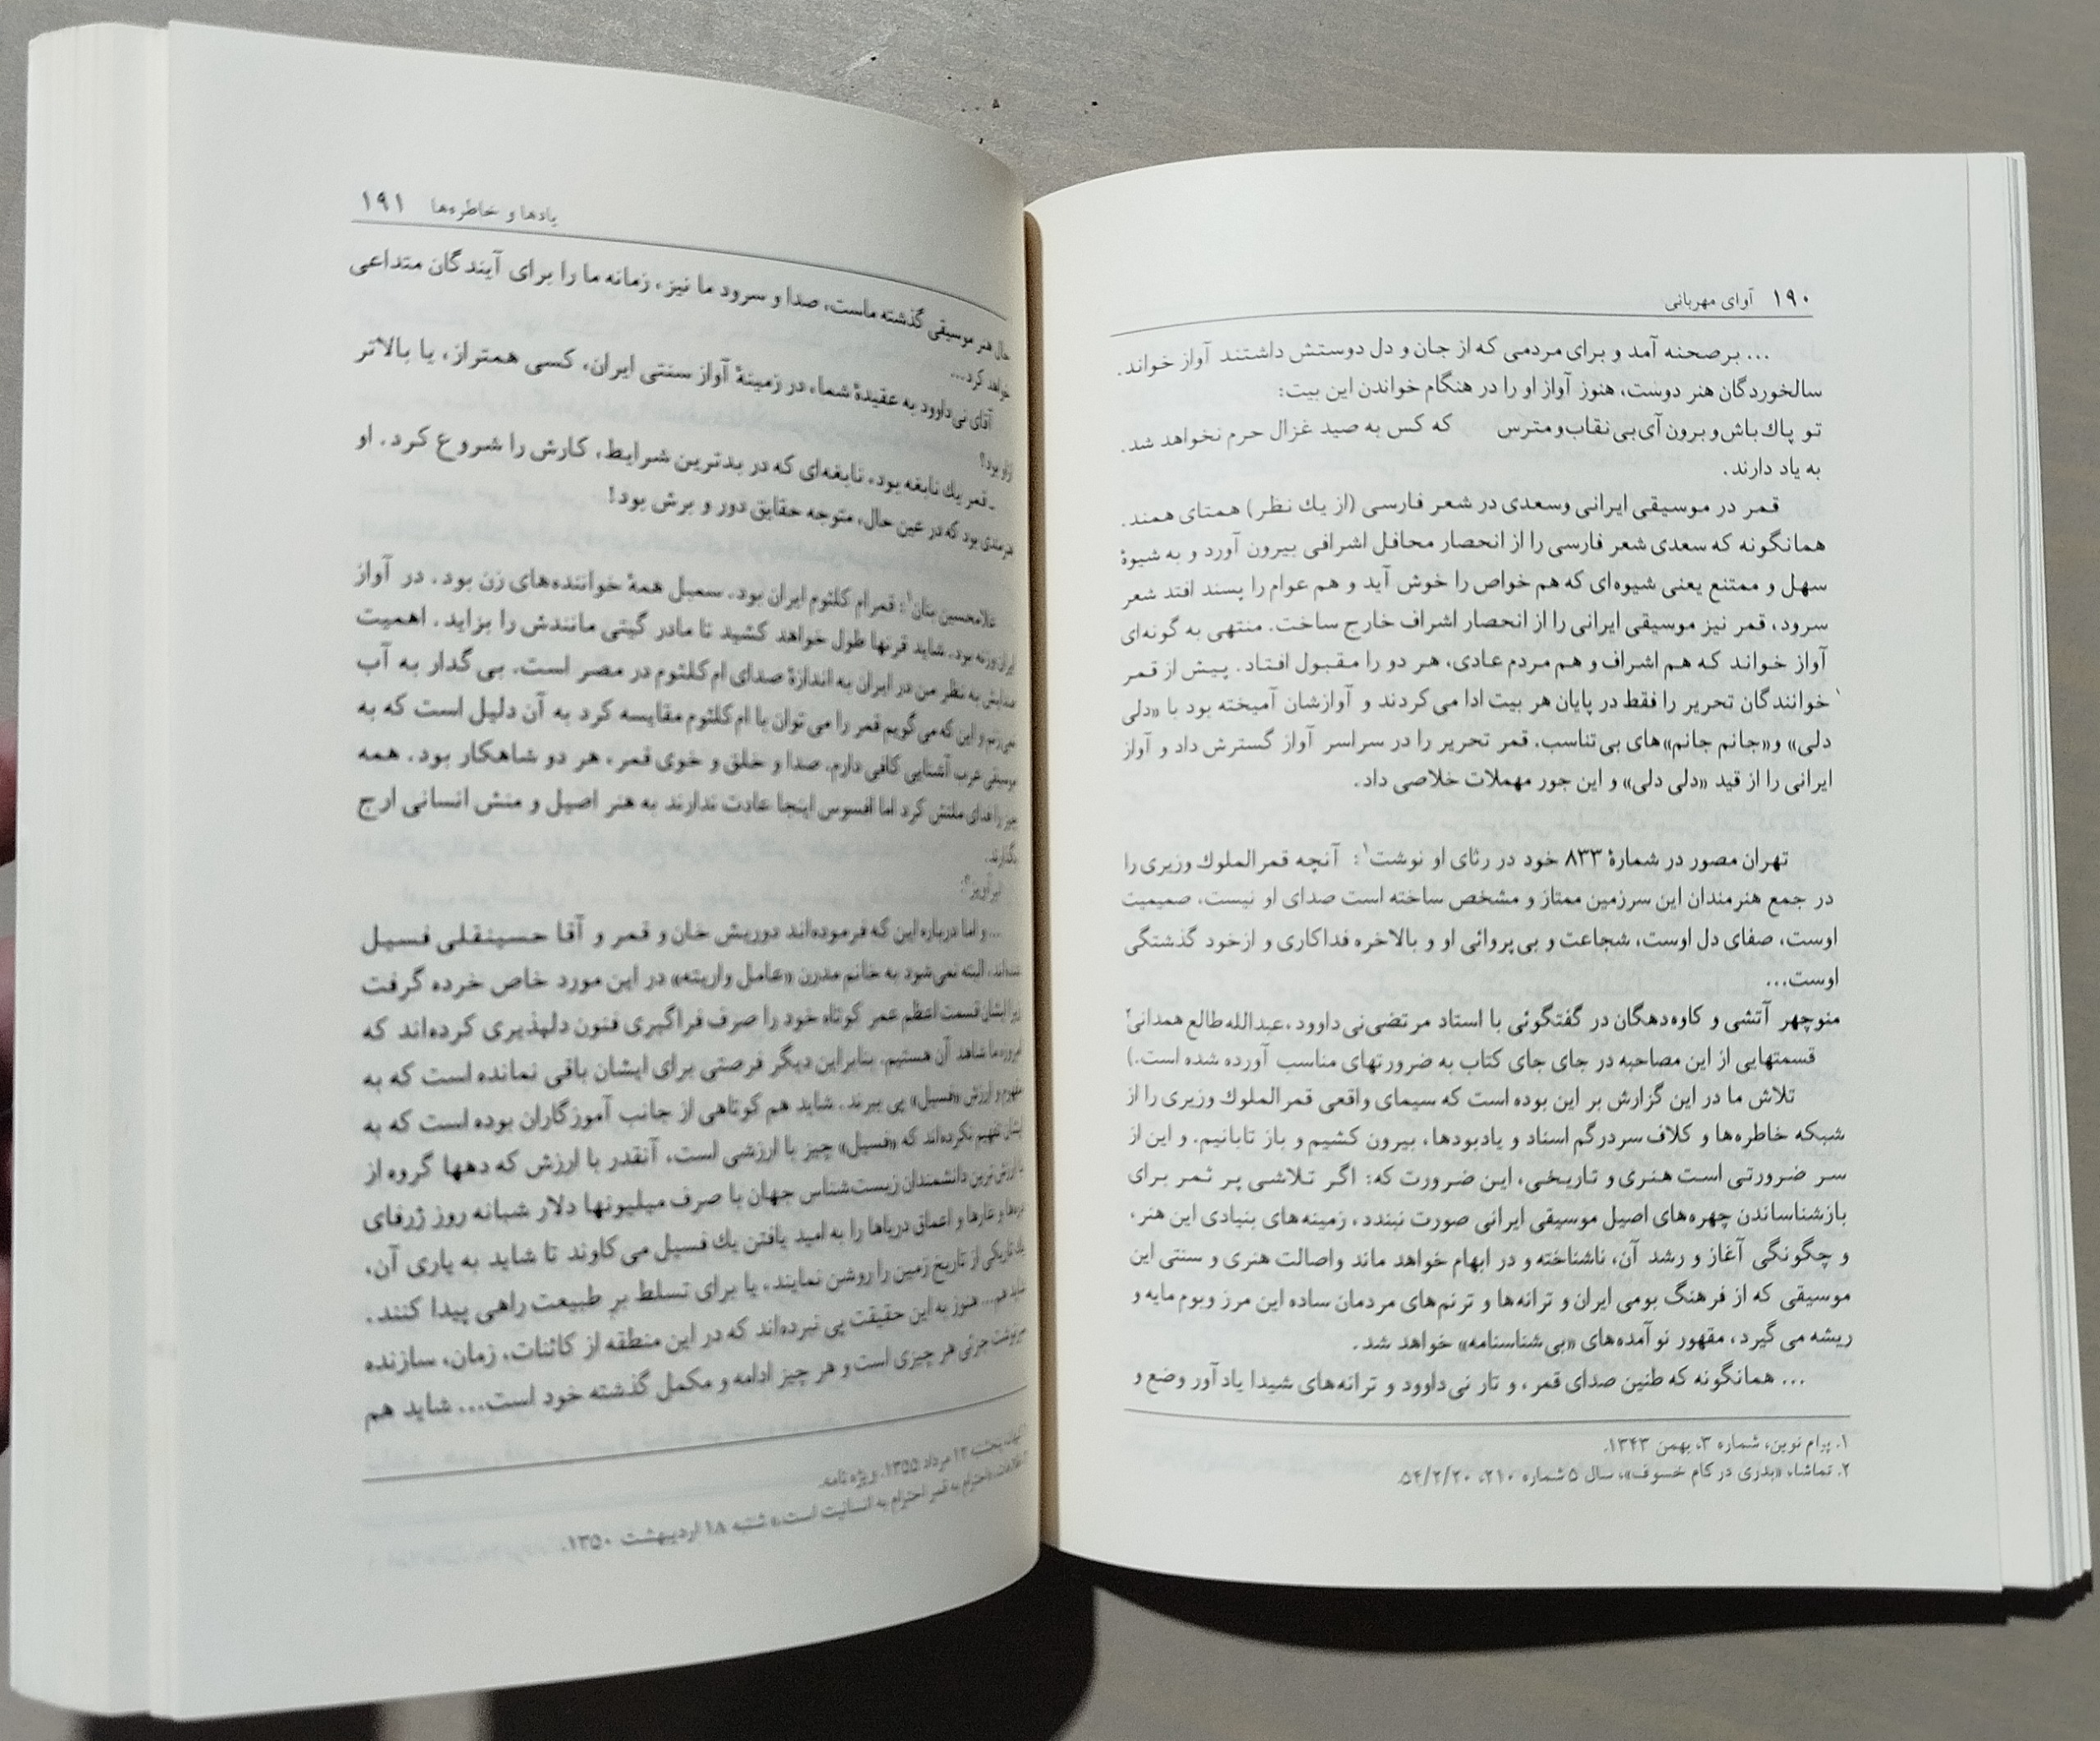 ۱۹۰ آوای مهربانی
... برصحنه آمد و برای مردمی که از جان و دل دوستش داشتند آواز خواند.
سالخوردگان هنر دوست، هنوز آواز او را در هنگام خواندن این بیت:
تو پاك باش و برون آی بی نقاب و مترس که کس به صید غزال حرم نخواهد شد.
به یاد دارند.
قمر در موسیقی ایرانی وسعدی در شعر فارسی (از یك نظر) همتای همند.
همانگونه که سعدی شعر فارسی را از انحصار محافل اشرافی بیرون آورد و به شیوهٔ
سهل و ممتنع یعنی شیوه‌ای که هم خواص را خوش آید و هم عوام را پسند افتد شعر
سرود، قمر نیز موسیقی ایرانی را از انحصار اشراف خارج ساخت. منتهی به گونه‌ای
آواز خواند که هم اشراف و هم مردم عادی، هر دو را مقبول افتاد. پیش از قمر
خوانندگان تحریر را فقط در پایان هر بیت ادا می‌کردند و آوازشان آمیخته بود با «دلی
دلی» و «جانم جانم»های بی‌تناسب. قمر تحریر را در سراسر آواز گسترش داد و آواز
ایرانی را از قید «دلی دلی» و این جور مهملات خلاصی داد.
تهران مصور در شمارهٔ ۸۳۳ خود در رثای او نوشت۱: آنچه قمرالملوك وزیری را
در جمع هنرمندان این سرزمین ممتاز و مشخص ساخته است صدای او نیست، صمیمیت
اوست، صفای دل اوست، شجاعت و بی‌پروائی او و بالاخره فداکاری و ازخود گذشتگی
اوست...
منوچهر آتشی و کاوه دهگان در گفتگوئی با استاد مرتضی نی‌داوود، عبدالله طالع همدانی۲
قسمتهایی از این مصاحبه در جای جای کتاب به ضرورتهای مناسب آورده شده است.)
تلاش ما در این گزارش بر این بوده است که سیمای واقعی قمرالملوك وزیری را از
شبکه خاطره‌ها و کلاف سردرگم اسناد و یادبودها، بیرون کشیم و باز تابانیم. و این از
سر ضرورتی است هنری و تاریخی، این ضرورت که: اگر تلاشی پر ثمر برای
بازشناساندن چهره‌های اصیل موسیقی ایرانی صورت نبندد، زمینه‌های بنیادی این هنر،
و چگونگی آغاز و رشد آن، ناشناخته و در ابهام خواهد ماند واصالت هنری و سنتی این
موسیقی که از فرهنگ بومی ایران و ترانه‌ها و ترنم‌های مردمان ساده این مرز وبوم مایه و
ریشه می گیرد، مقهور نو آمده‌های «بی شناسنامه» خواهد شد.
... همانگونه که طنین صدای قمر، و تار نی‌داوود و ترانه‌های شیدا یاد آور وضع و
۱. پیام نوین، شماره ۳، بهمن ۱۳۴۳.
۲. تماشا، «بدری در کام خسوف»، سال ۵ شماره ۲۱۰، ۵۴/۲/۲۰.
یادها و خاطره‌ها ۱۹۱
حال هنر موسیقی گذشته ماست، صدا و سرود ما نیز، زمانه ما را برای آیندگان متداعی
خواهد کرد...
آقای نی‌داوود به عقیدهٔ شما، در زمینهٔ آواز سنتی ایران، کسی همتراز، یا بالاتر
از او بود؟
ـ قمر یك نابغه بود، نابغه‌ای که در بدترین شرایط، کارش را شروع کرد. او
بود که در عین حال، متوجه حقایق دور و برش بود!
غلامحسین بنان۱: قمر ام کلثوم ایران بود. سمبل همهٔ خواننده‌های زن بود. در آواز
ایران وزنه بود. شاید قرنها طول خواهد کشید تا مادر گیتی مانندش را بزاید. اهمیت
صدایش به نظر من در ایران به اندازهٔ صدای ام کلثوم در مصر است. بی گدار به آب
نمی‌زنم و این که می گویم قمر را می توان با ام کلثوم مقایسه کرد به آن دلیل است که به
موسیقی عرب آشنایی کافی دارم. صدا و خلق و خوی قمر، هر دو شاهکار بود. همه
چیز را فدای ملتش کرد اما افسوس اینجا عادت ندارند به هنر اصیل و منش انسانی ارج
بگذارند.
... و اما درباره این که فرموده‌اند درویش خان و قمر و آقا حسینقلی فسیل
شده‌اند، البته نمی‌شود به خانم مدرن «عامل واریته» در این مورد خاص خرده گرفت
زیرا ایشان قسمت اعظم عمر کوتاه خود را صرف فراگیری فنون دلپذیری کرده‌اند که
امروزه ما شاهد آن هستیم. بنابراین دیگر فرصتی برای ایشان باقی نمانده است که به
مفهوم و ارزش «فسیل» پی ببرند. شاید هم کوتاهی از جانب آموزگاران بوده است که به
ایشان تفهیم نکرده‌اند که «فسیل» چیز با ارزشی است، آنقدر با ارزش که دهها گروه از
با ارزش‌ترین دانشمندان زیست‌شناس جهان با صرف میلیونها دلار شبانه روز ژرفای
دره‌ها و غارها و اعماق دریاها را به امید یافتن یك فسیل می کاوند تا شاید به یاری آن،
تاریکی از تاریخ زمین را روشن نمایند، یا برای تسلط بر طبیعت راهی پیدا کنند.
شاید هم... هنوز به این حقیقت پی نبرده‌اند که در این منطقه از کائنات، زمان، سازنده
سرنوشت جزئی هر چیزی است و هر چیز ادامه و مکمل گذشته خود است... شاید هم
پنجشنبه ۱۴ مرداد ۱۳۵۵، ویژه نامه.
احترام به قمر احترام به انسانیت است» شنبه ۱۸ اردیبهشت ۱۳۵۰.